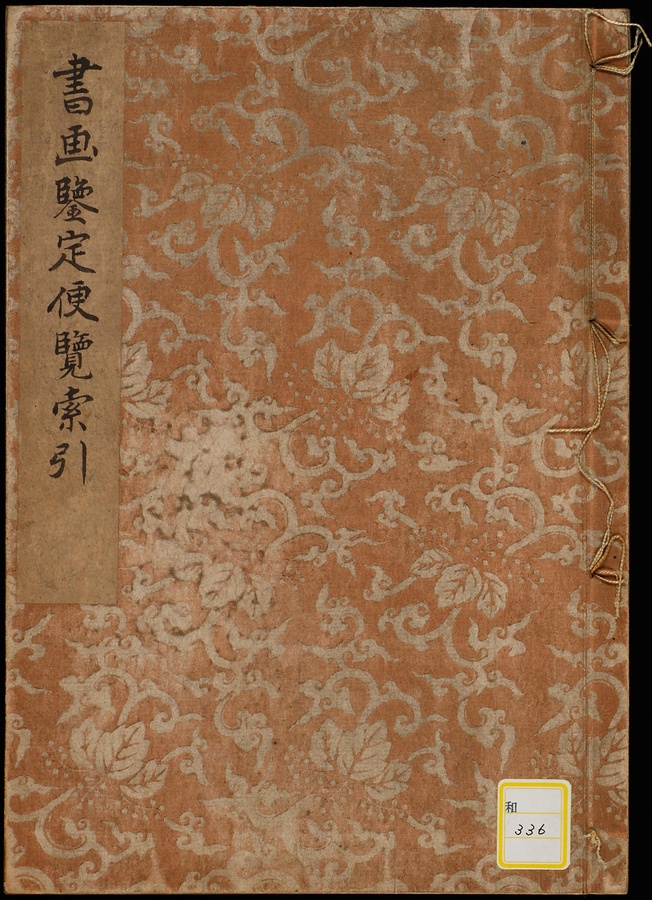 書画鑒定便覧索引
和
336